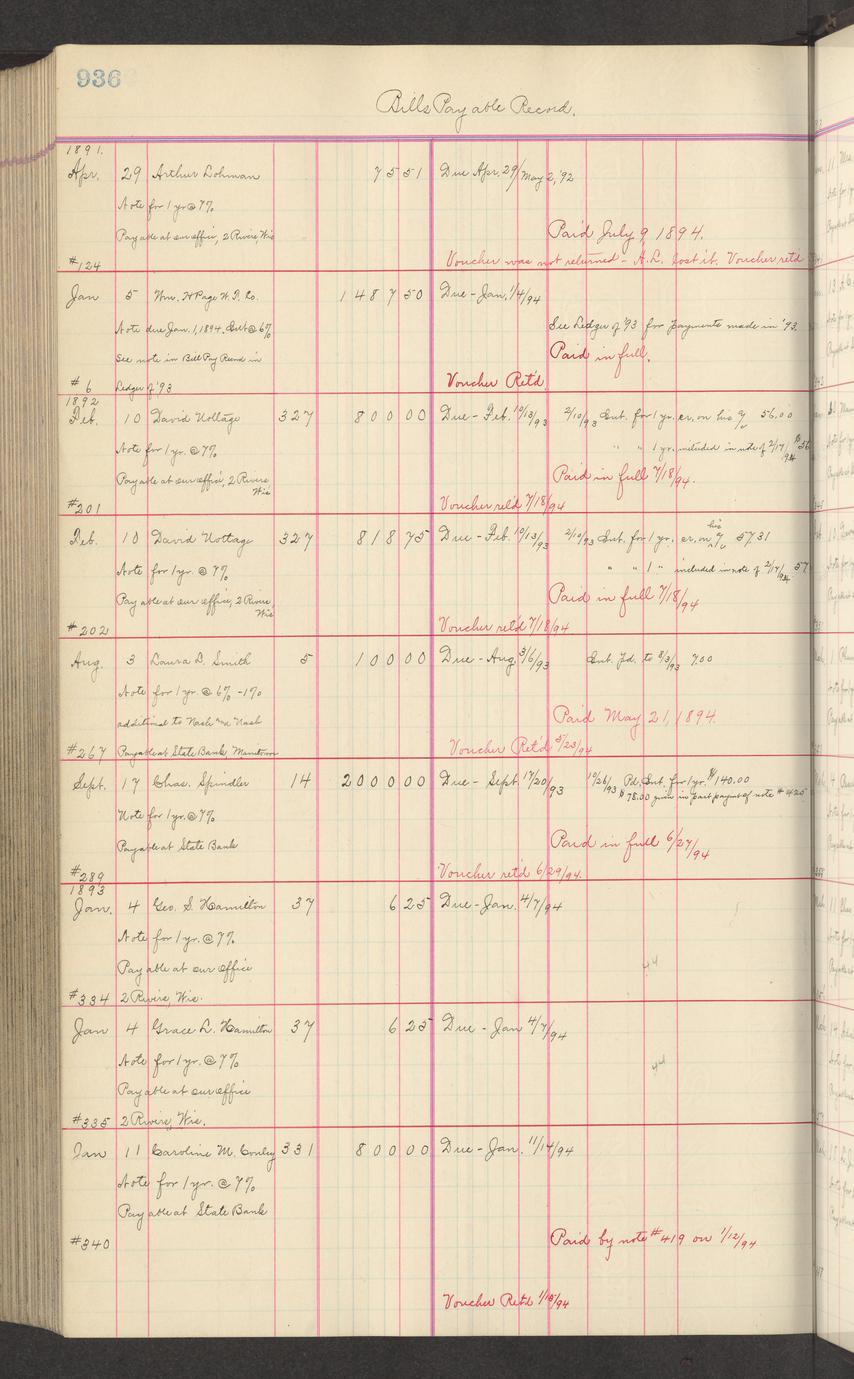 936
Bills Payable Record.
1891.
Apr. 29 Arthur Lohman 75 51 Due Apr. 29/May 2, '92
Note for 1 yr @ 7%
Payable at our office, 2 Rivers, Wis Paid July 9, 1894.
#124 Voucher was not returned - A.L. lost it. Voucher ret'd
Jan 5 Wm. H Page W. P. Co. 1487 50 Due - Jan. 1/4/94
Note due Jan. 1, 1894. Int @ 6% See Ledger of '93 for payments made in '93.
See note in Bill Pay Record in Paid in full.
#6 Ledger of '93 Voucher Ret'd
1892
Feb. 10 David Nottage 327 800 00 Due - Feb. 10/13/93 2/10/93 Int. for 1 yr. cr. on his 56.00
Note for 1 yr. @ 7% " " 1 yr. included in note of 2/17/94 $56
Payable at our office, 2 Rivers Wis Paid in full 7/18/94.
#201 Voucher ret'd 7/18/94
Feb. 10 David Nottage 327 818 75 Due - Feb. 10/13/93 2/10/93 Int. for 1 yr. cr. on his 57.31
Note for 1 yr. @ 7% " " 1 " included in note of 2/17/94 57
Payable at our office, 2 Rivers Wis Paid in full 7/18/94
#202 Voucher ret'd 7/18/94
Aug. 3 Laura L. Smith 5 100 00 Due - Aug. 3/6/93 Int. Pd. to 8/3/93 7.00
Note for 1 yr. @ 6% - 1%
additional to Nash and Nash Paid May 21, 1894.
#267 Payable at State Bank, Manitowoc Voucher Ret'd 5/23/94
Sept. 17 Chas. Spindler 14 2000 00 Due - Sept. 17/20/93 10/26/93 Pd. Int. for 1 yr. $140.00
Note for 1 yr. @ 7% $78.00 given in part payment of note #425
Payable at State Bank Paid in full 6/27/94
#289 Voucher ret'd 6/29/94.
1893
Jan. 4 Geo. S. Hamilton 37 6 25 Due - Jan. 4/7/94
Note for 1 yr. @ 7%
Payable at our office
#334 2 Rivers, Wis.
Jan 4 Grace L. Hamilton 37 6 25 Due - Jan 4/7/94
Note for 1 yr. @ 7%
Payable at our office
#335 2 Rivers, Wis.
Jan 11 Caroline M. Conley 331 800 00 Due - Jan. 11/14/94
Note for 1 yr. @ 7%
Payable at State Bank
#340 Paid by note #419 on 1/12/94
Voucher Ret'd 1/15/94